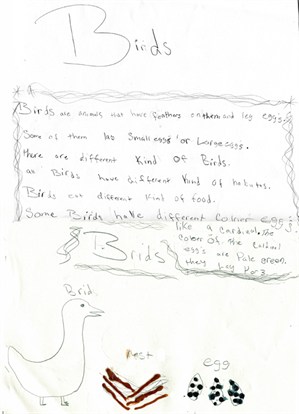 Birds
Birds are animals that have feathers on them and lay eggs.
Some of them lay Small eggs or Large eggs.
there are different Kind of Birds.
all Birds have different Kind of habitats.
Birds eat different Kind of food.
Some Birds have different colour eggs!
like a cardenal the
Brids
colour of the
eggs are Pale green.
they lay 2 or 3
Brid
nest
egg